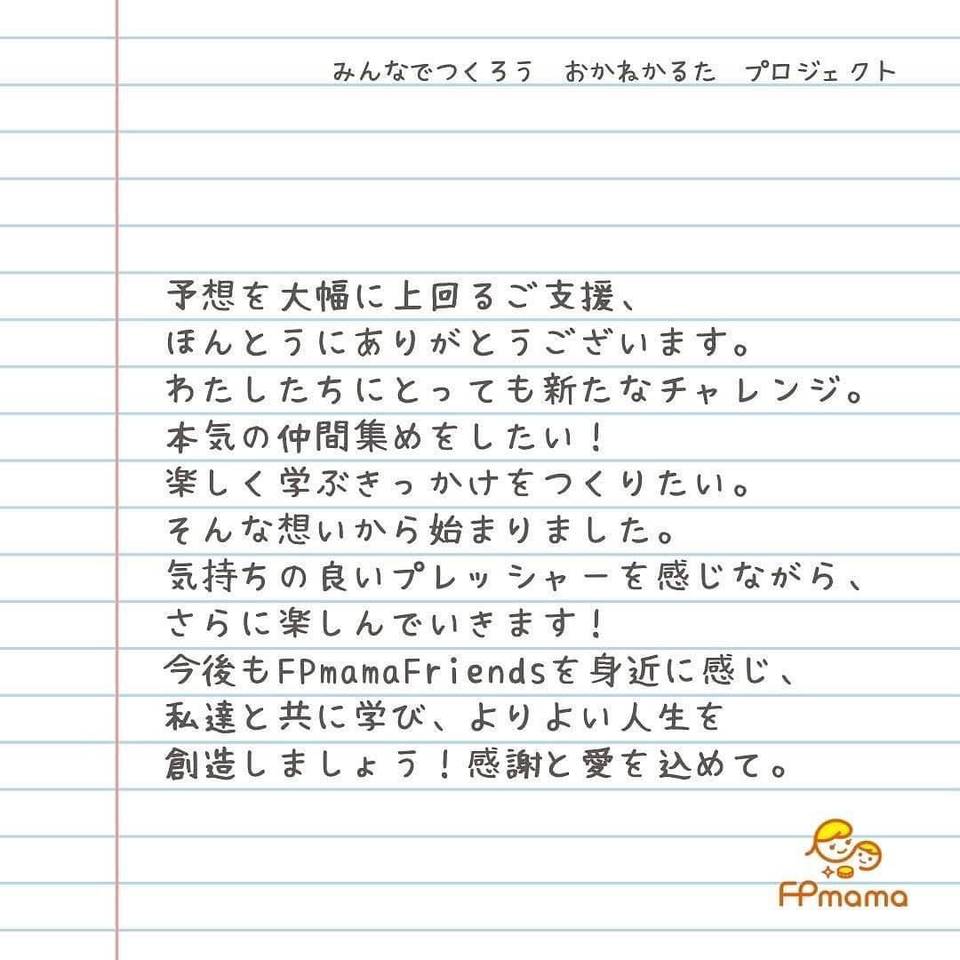 みんなでつくろう　おかねかるた　プロジェクト
予想を大幅に上回るご支援、
ほんとうにありがとうございます。
わたしたちにとっても新たなチャレンジ。
本気の仲間集めをしたい！
楽しく学ぶきっかけをつくりたい。
そんな想いから始まりました。
気持ちの良いプレッシャーを感じながら、
さらに楽しんでいきます！
今後もFPmamaFriendsを身近に感じ、
私達と共に学び、よりよい人生を
創造しましょう！感謝と愛を込めて。
FPmama